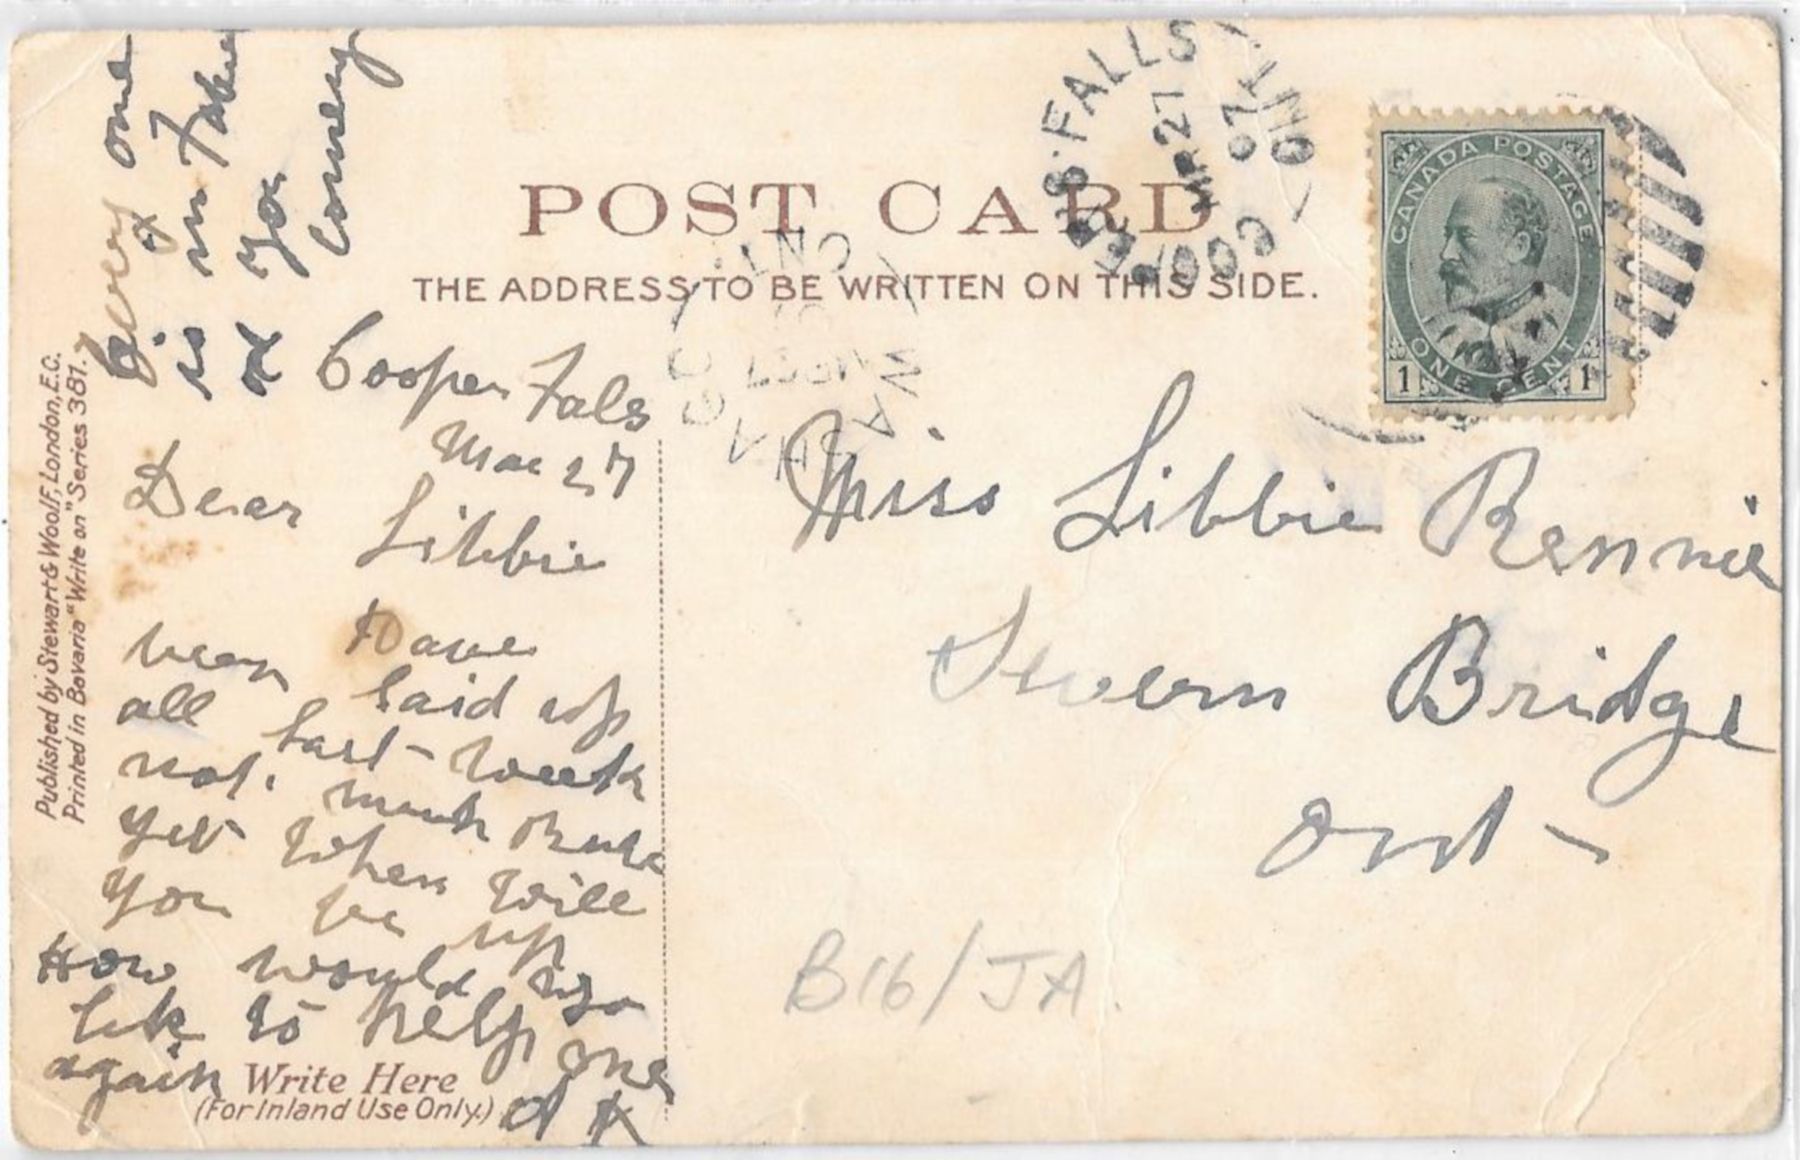 POST CARD
THE ADDRESS TO BE WRITTEN ON THIS SIDE.
COOPER'S FALLS
MR 27
07
ONT
CANADA POSTAGE
ONE CENT
1 1
WASHAGO
ONT
Every one
is in
of you
Coming
Cooper Fals
Mar 27
Dear
Libbie
Have
been laid up
all last week
not much
yet when will
you be up
How would you
like to help one
again
Write Here
(For Inland Use Only.)
Miss Libbie Rennie
Severn Bridge
Ont
B16/JA
Published by Stewart & Woolf, London, E.C.
Printed in Bavaria "Write on" Series 381.